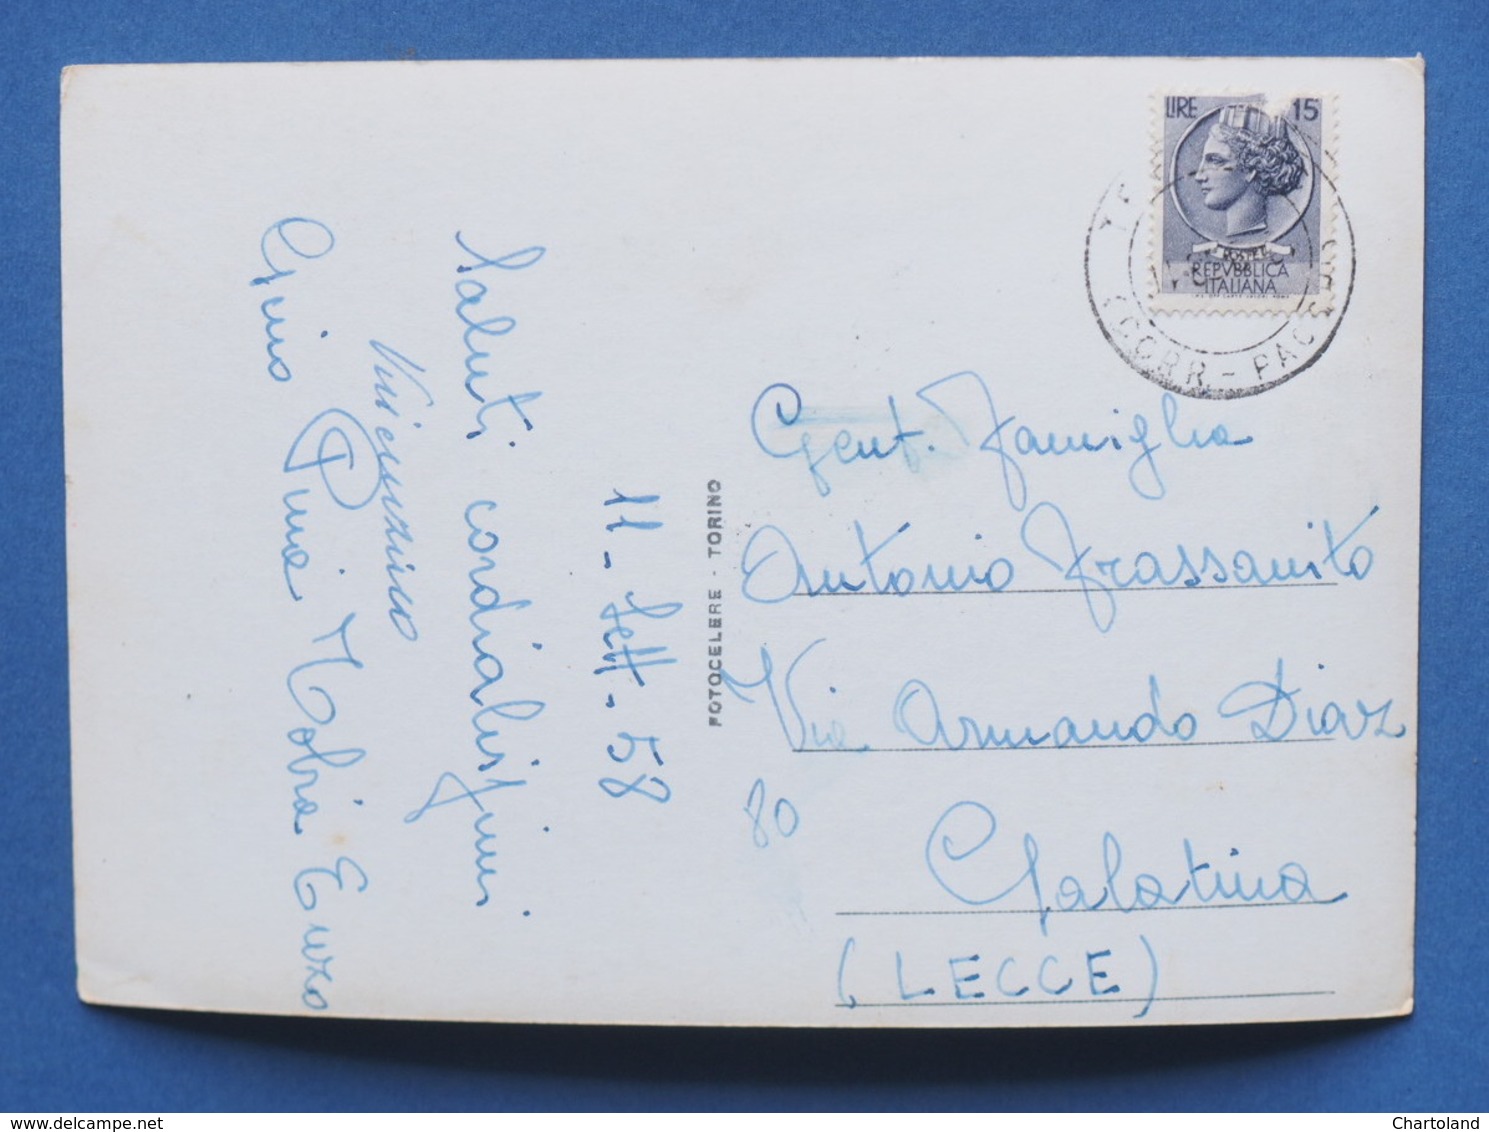 11 - Sett. - 58
Saluti cordialissimi
Gino Pina Maria Enzo
FOTOCELERE - TORINO
LIRE 15
POSTE
REPVBBLICA
ITALIANA
CORR - PACCHI
Gent. Famiglia
Antonio Frassanito
Via Armando Diaz
80
Galatina
(LECCE)
www.delcampe.net
Chartoland